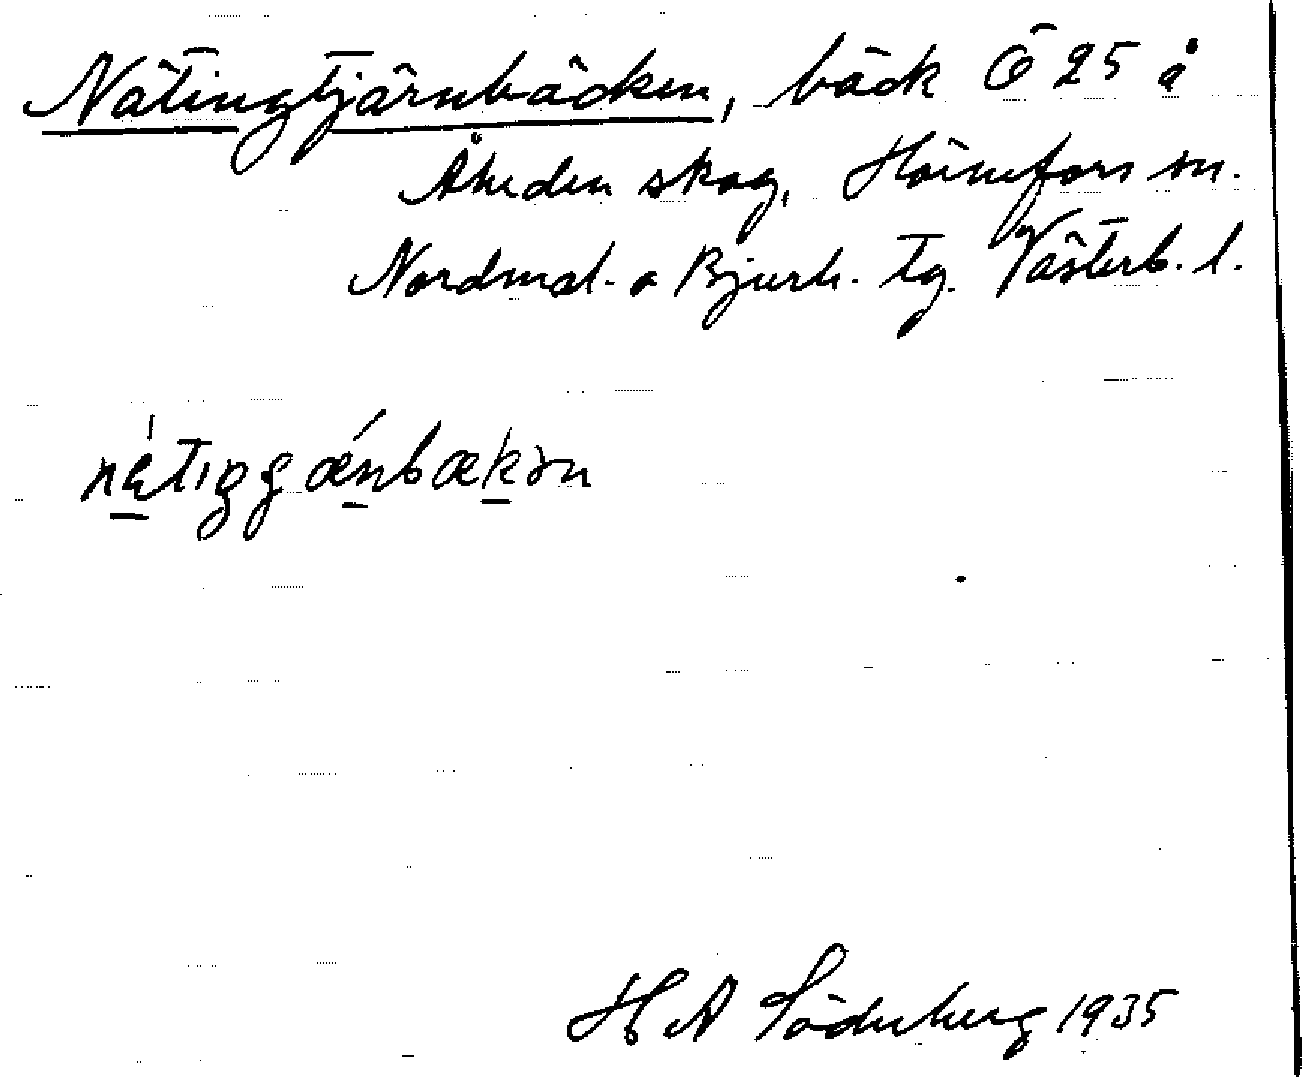 Nätingtjärnbäcken, bäck Ö 25 å
Åheden skog, Hörnefors sn.
Nordmal. o Bjurh. tg. Västerb. l.
nétiggǽnbækən
H A Söderberg 1935